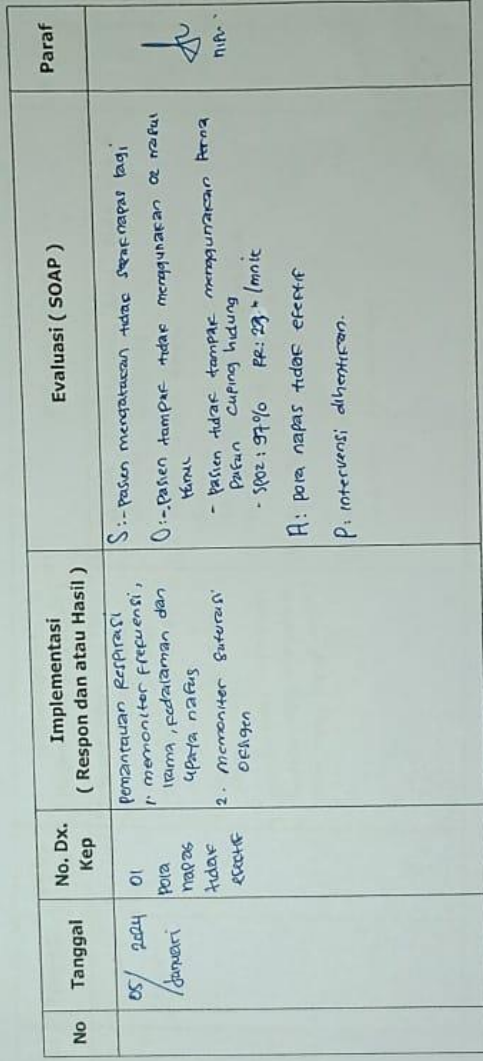 No
Tanggal
No. Dx.
Kep
Implementasi
( Respon dan atau Hasil )
Evaluasi ( SOAP )
Paraf
05/ 2024
/Januari
01
Pola
napas
tidak
efektif
Pemantauan Respirasi
1. memonitor Frekuensi,
irama, kedalaman dan
upaya nafas
2. memoniter saturasi
oksigen
S:- Pasien mengatakan tidak sesak napas lagi
O:- Pasien tampak tidak menggunakan O2 nasal
kanul
- Pasien tidak tampak menggunakan Perna
pasan cuping hidung
- SPO2: 97% RR: 23 x /mnit
A: pola napas tidak efektif
P: intervensi dihentikan.